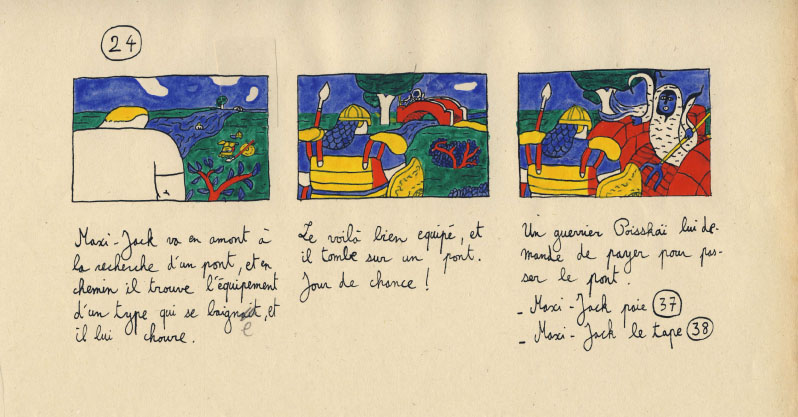 24
Maxi-Jack va en amont à
la recherche d'un pont, et en
chemin il trouve l'équipement
d'un type qui se baigne, et
il lui choure.
Le voilà bien equipé, et
il tombe sur un pont.
Jour de chance !
Un guerrier Poisskaï lui de-
mande de payer pour pas-
ser le pont.
- Maxi-Jack paie 37
- Maxi-Jack le tape 38